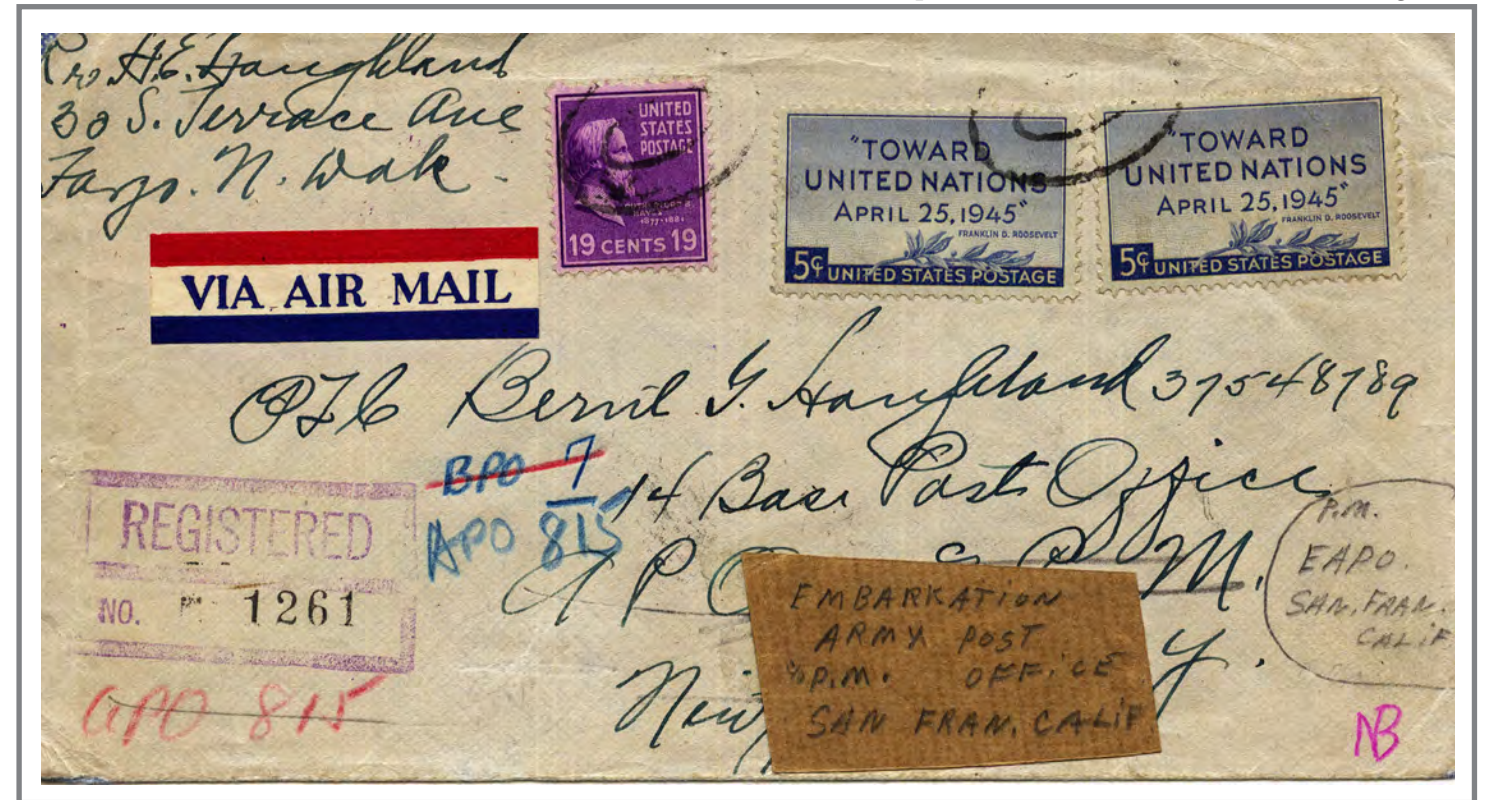 H.E. Haughland
30 S. Terrace Ave
Fargo. N. Dak.
UNITED
STATES
POSTAGE
HAYES
1877-1881
19 CENTS 19
"TOWARD
UNITED NATIONS
APRIL 25, 1945"
FRANKLIN D. ROOSEVELT
5¢ UNITED STATES POSTAGE
"TOWARD
UNITED NATIONS
APRIL 25, 1945"
FRANKLIN D. ROOSEVELT
5¢ UNITED STATES POSTAGE
VIA AIR MAIL
PFC Bernil G. Haughland 37548789
BPO 7
14 Base Post Office
APO 815
A P O P M.
New Y.
REGISTERED
NO. 1261
APO 815
EMBARKATION
ARMY POST
% P.M. OFFICE
SAN FRAN, CALIF
P.M.
EAPO.
SAN, FRAN.
CALIF
NB